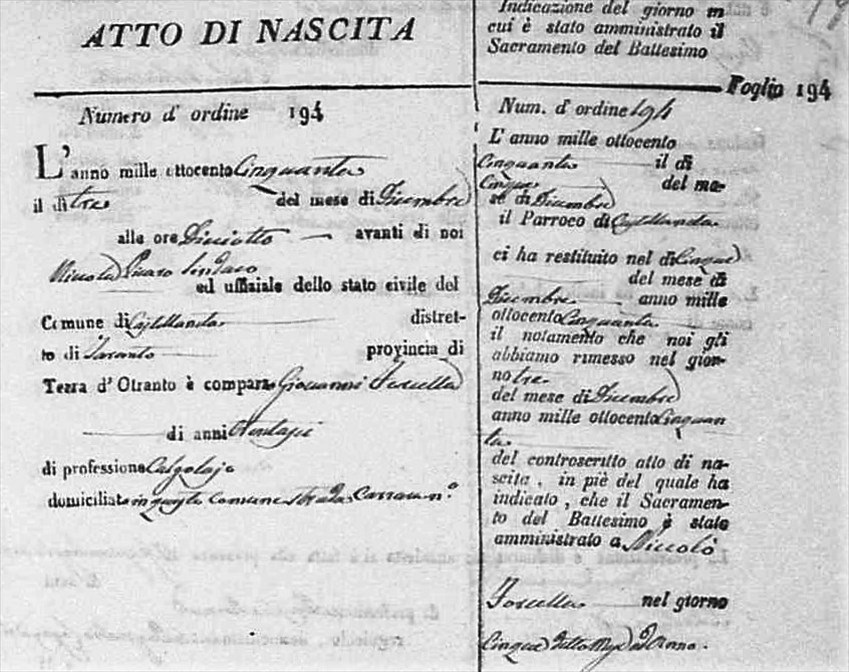 ATTO DI NASCITA
Numero d' ordine 194
L' anno mille ottocento Cinquanta
il dì tre del mese di Dicembre
alle ore Diciotto avanti di noi
Sindaco
ed uffiziale dello stato civile del
Comune di Castellaneta distret-
to di Taranto provincia di
Terra d' Otranto è comparso Giovanni Forcella
di anni trentasei
di professione Calzolajo
domiciliato in questo comune strada n.º
Indicazione del giorno in
cui è stato amministrato il
Sacramento del Battesimo
Foglio 194
Num. d' ordine 194
L' anno mille ottocento
Cinquanta il dì
Cinque del me-
se di Dicembre
il Parroco di Castellaneta
ci ha restituito nel dì Cinque
del mese di
Dicembre anno mille
ottocento Cinquanta
il notamento che noi gli
abbiamo rimesso nel gior-
no tre
del mese di Dicembre
anno mille ottocento Cinquan
ta
del controscritto atto di na-
scita, in piè del quale ha
indicato, che il Sacramen-
to del Battesimo è stato
amministrato a Niccolò
Forcella nel giorno
Cinque detto Mese ed Anno.